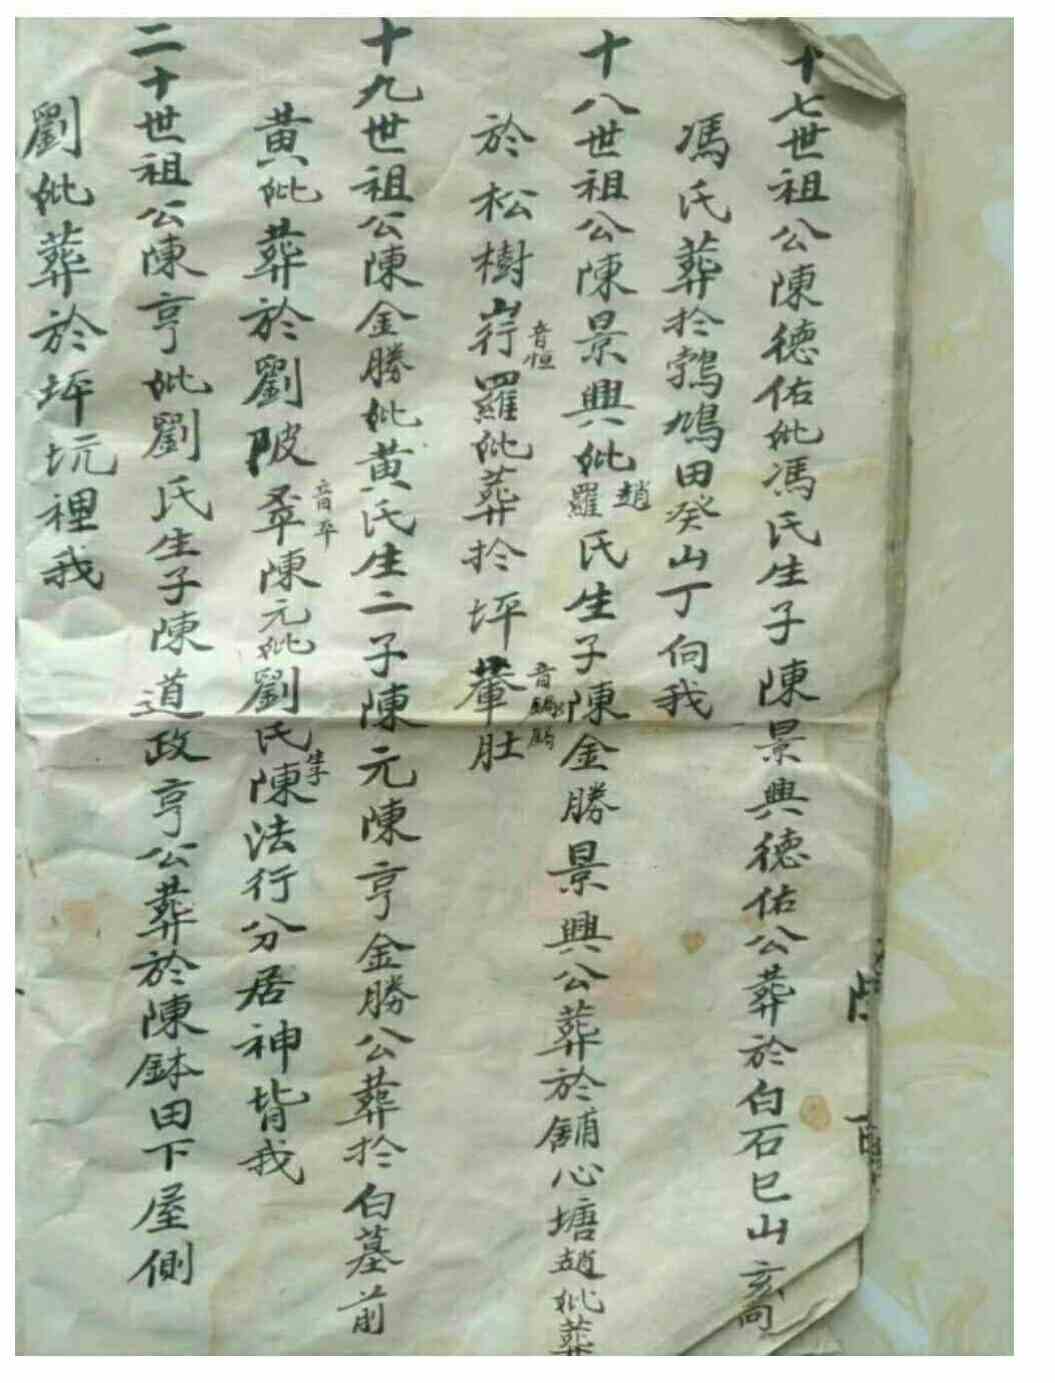 十七世祖公陳德佑妣馮氏生子陳景興德佑公葬於白石巳山亥向
馮氏葬於鵓鳩田癸山丁向我
十八世祖公陳景興妣趙羅氏生子陳金勝景興公葬於舖心塘趙妣葬
於松樹㟃音恒羅妣葬於坪輋肚音
十九世祖公陳金勝妣黃氏生二子陳元陳亨金勝公葬於白墓前
黃妣葬於劉陂音平陳元妣劉氏生子陳法行分居神背我
二十世祖公陳亨妣劉氏生子陳道政亨公葬於陳缽田下屋側
劉妣葬於坪坑裡我